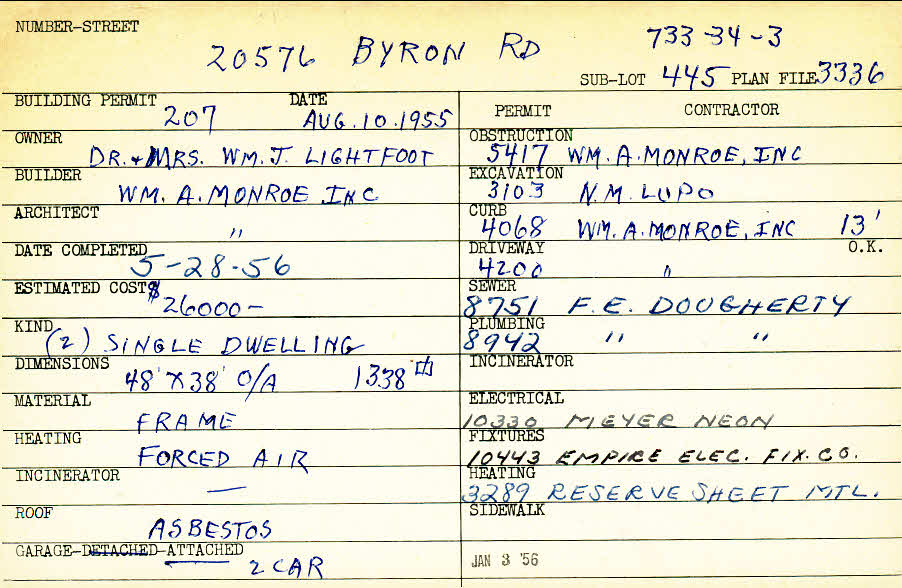 NUMBER-STREET
20576 BYRON RD
733-34-3
SUB-LOT 445 PLAN FILE 3336
BUILDING PERMIT 207 DATE AUG. 10. 1955
OWNER DR. & MRS. WM. J. LIGHTFOOT
BUILDER WM. A. MONROE INC
ARCHITECT "
DATE COMPLETED 5-28-56
ESTIMATED COST $26000-
KIND (2) SINGLE DWELLING
DIMENSIONS 48' X 38' O/A 1338
MATERIAL FRAME
HEATING FORCED AIR
INCINERATOR —
ROOF ASBESTOS
GARAGE-DETACHED-ATTACHED 2 CAR
PERMIT CONTRACTOR
OBSTRUCTION 5417 WM. A. MONROE, INC
EXCAVATION 3103 N.M. LUPO
CURB 4068 WM. A. MONROE, INC 13'
DRIVEWAY 4200 " O.K.
SEWER 8751 F.E. DOUGHERTY
PLUMBING 8942 " "
INCINERATOR
ELECTRICAL 10330 MEYER NEON
FIXTURES 10443 EMPIRE ELEC. FIX. CO.
HEATING 3289 RESERVE SHEET MTL.
SIDEWALK
JAN 3 '56